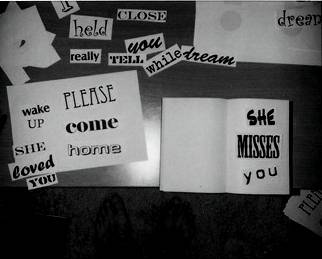 I
held
CLOSE
dream
really
TELL
you
while
dream
wake
UP
PLEASE
come
home
SHE
loved
YOU
SHE
MISSES
you
PLEA